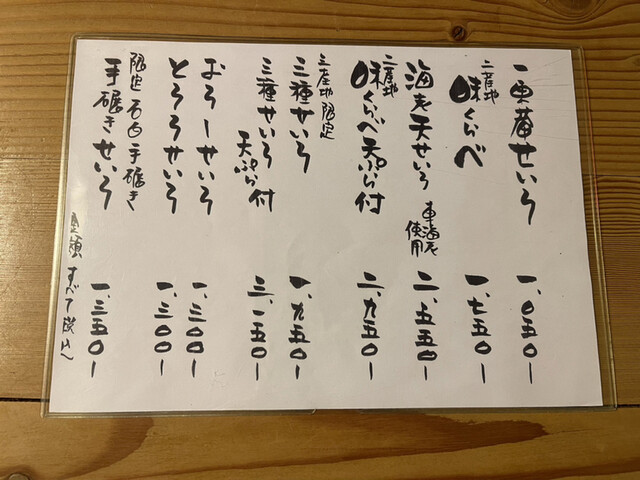 一東菴せいろ 一、〇五〇ー
二産地 味くらべ 一、七五〇ー
海老天せいろ 車海老使用 二、五五〇ー
二産地 味くらべ天ぷら付 二、九五〇ー
三産地限定 三種せいろ 一、九五〇ー
三種せいろ 天ぷら付 三、一五〇ー
おろしせいろ 一、三〇〇ー
とろろせいろ 一、三〇〇ー
限定 石臼手碾き
手碾きせいろ 一、三五〇ー
すべて